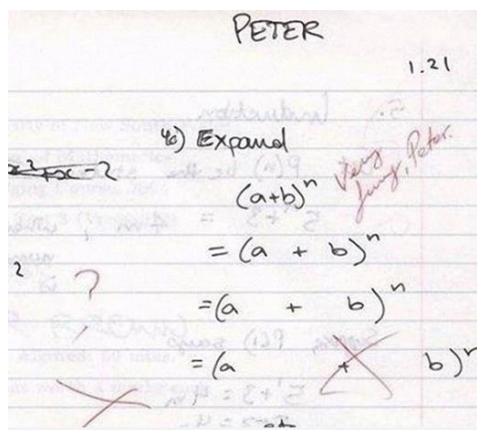 PETER
1.21
4c) Expand
x²+x=2
(a+b)ⁿ
Very funny, Peter.
= (a + b)ⁿ
2
?
= (a + b)ⁿ
= (a + b)ⁿ